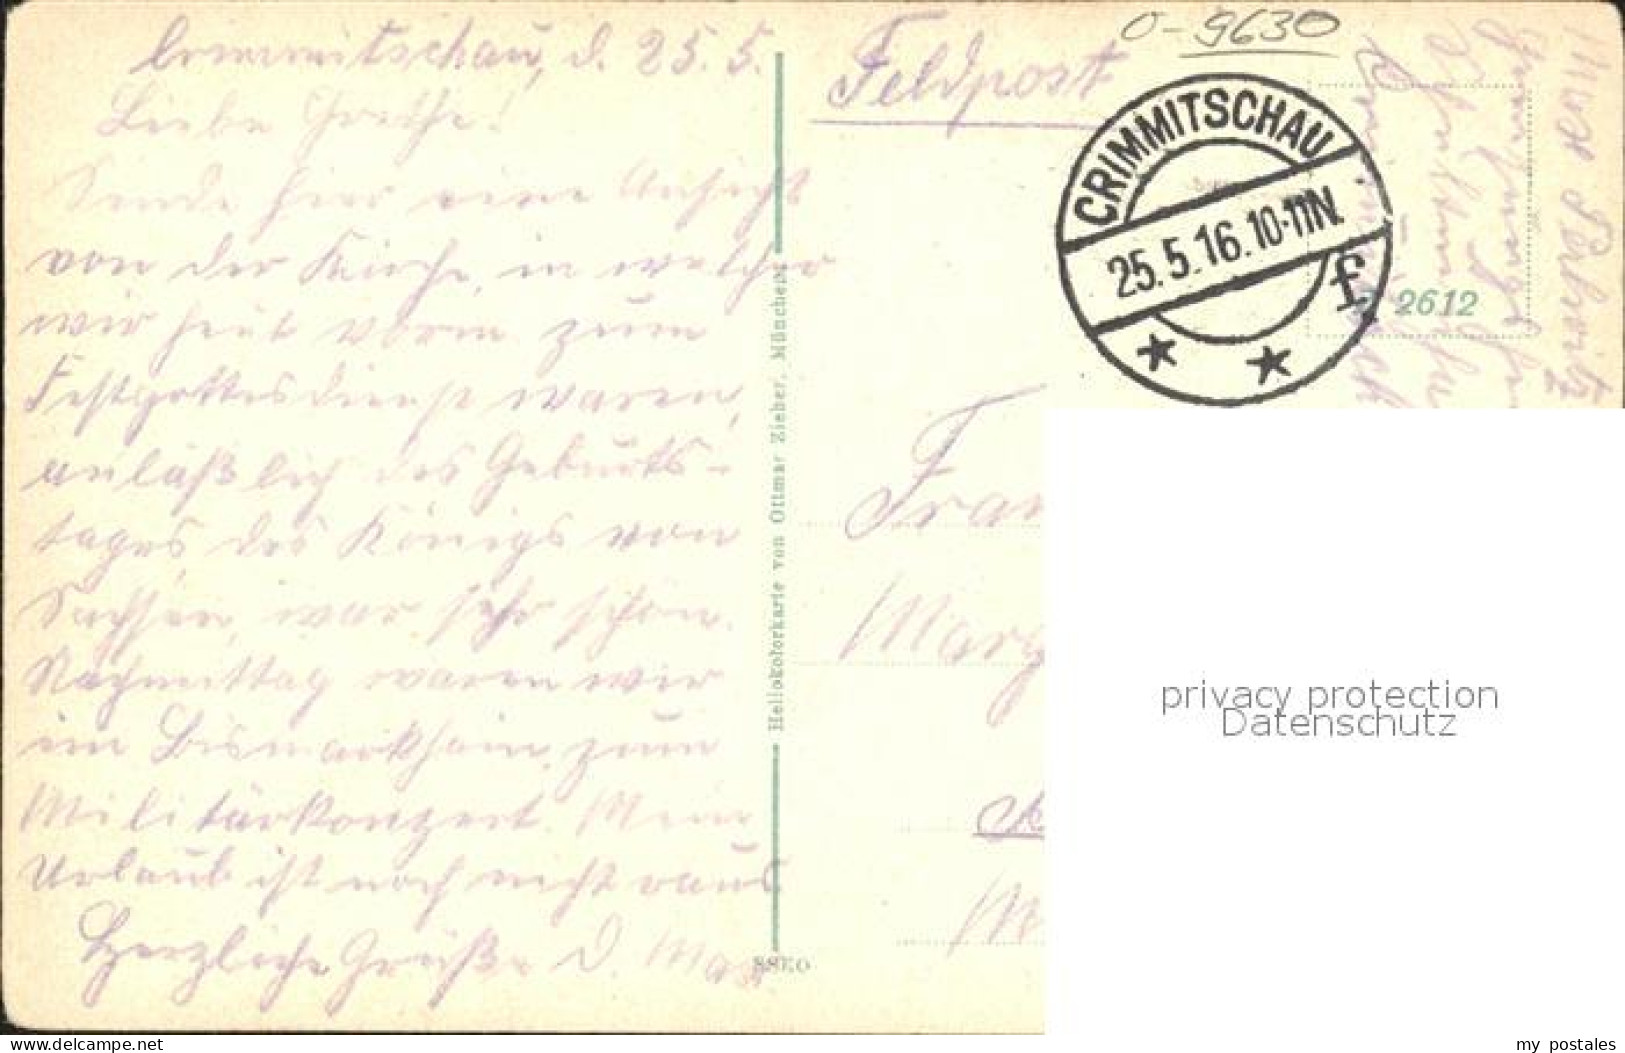 Crimmitschau, d. 25. 5.
Liebe Grethe!
Sende hier eine Ansicht
von der Kirche, in welcher
wir heut vorm. zum
Festgottesdienst waren,
anläßlich des Geburts-
tages des Königs von
Sachsen, war sehr schön.
Nachmittag waren wir
im Bismarkhain zum
Militärkonzert. Mein
Urlaub ist noch nicht raus
Herzliche Grüße D. Max
Hellokolorkarte von Ottmar Zieher, München
88E0
0-9630
Feldpost
CRIMMITSCHAU
25.5.16.10-11N.
f
2612
Fra
Marg
M
privacy protection
Datenschutz
www.delcampe.net
my_postales